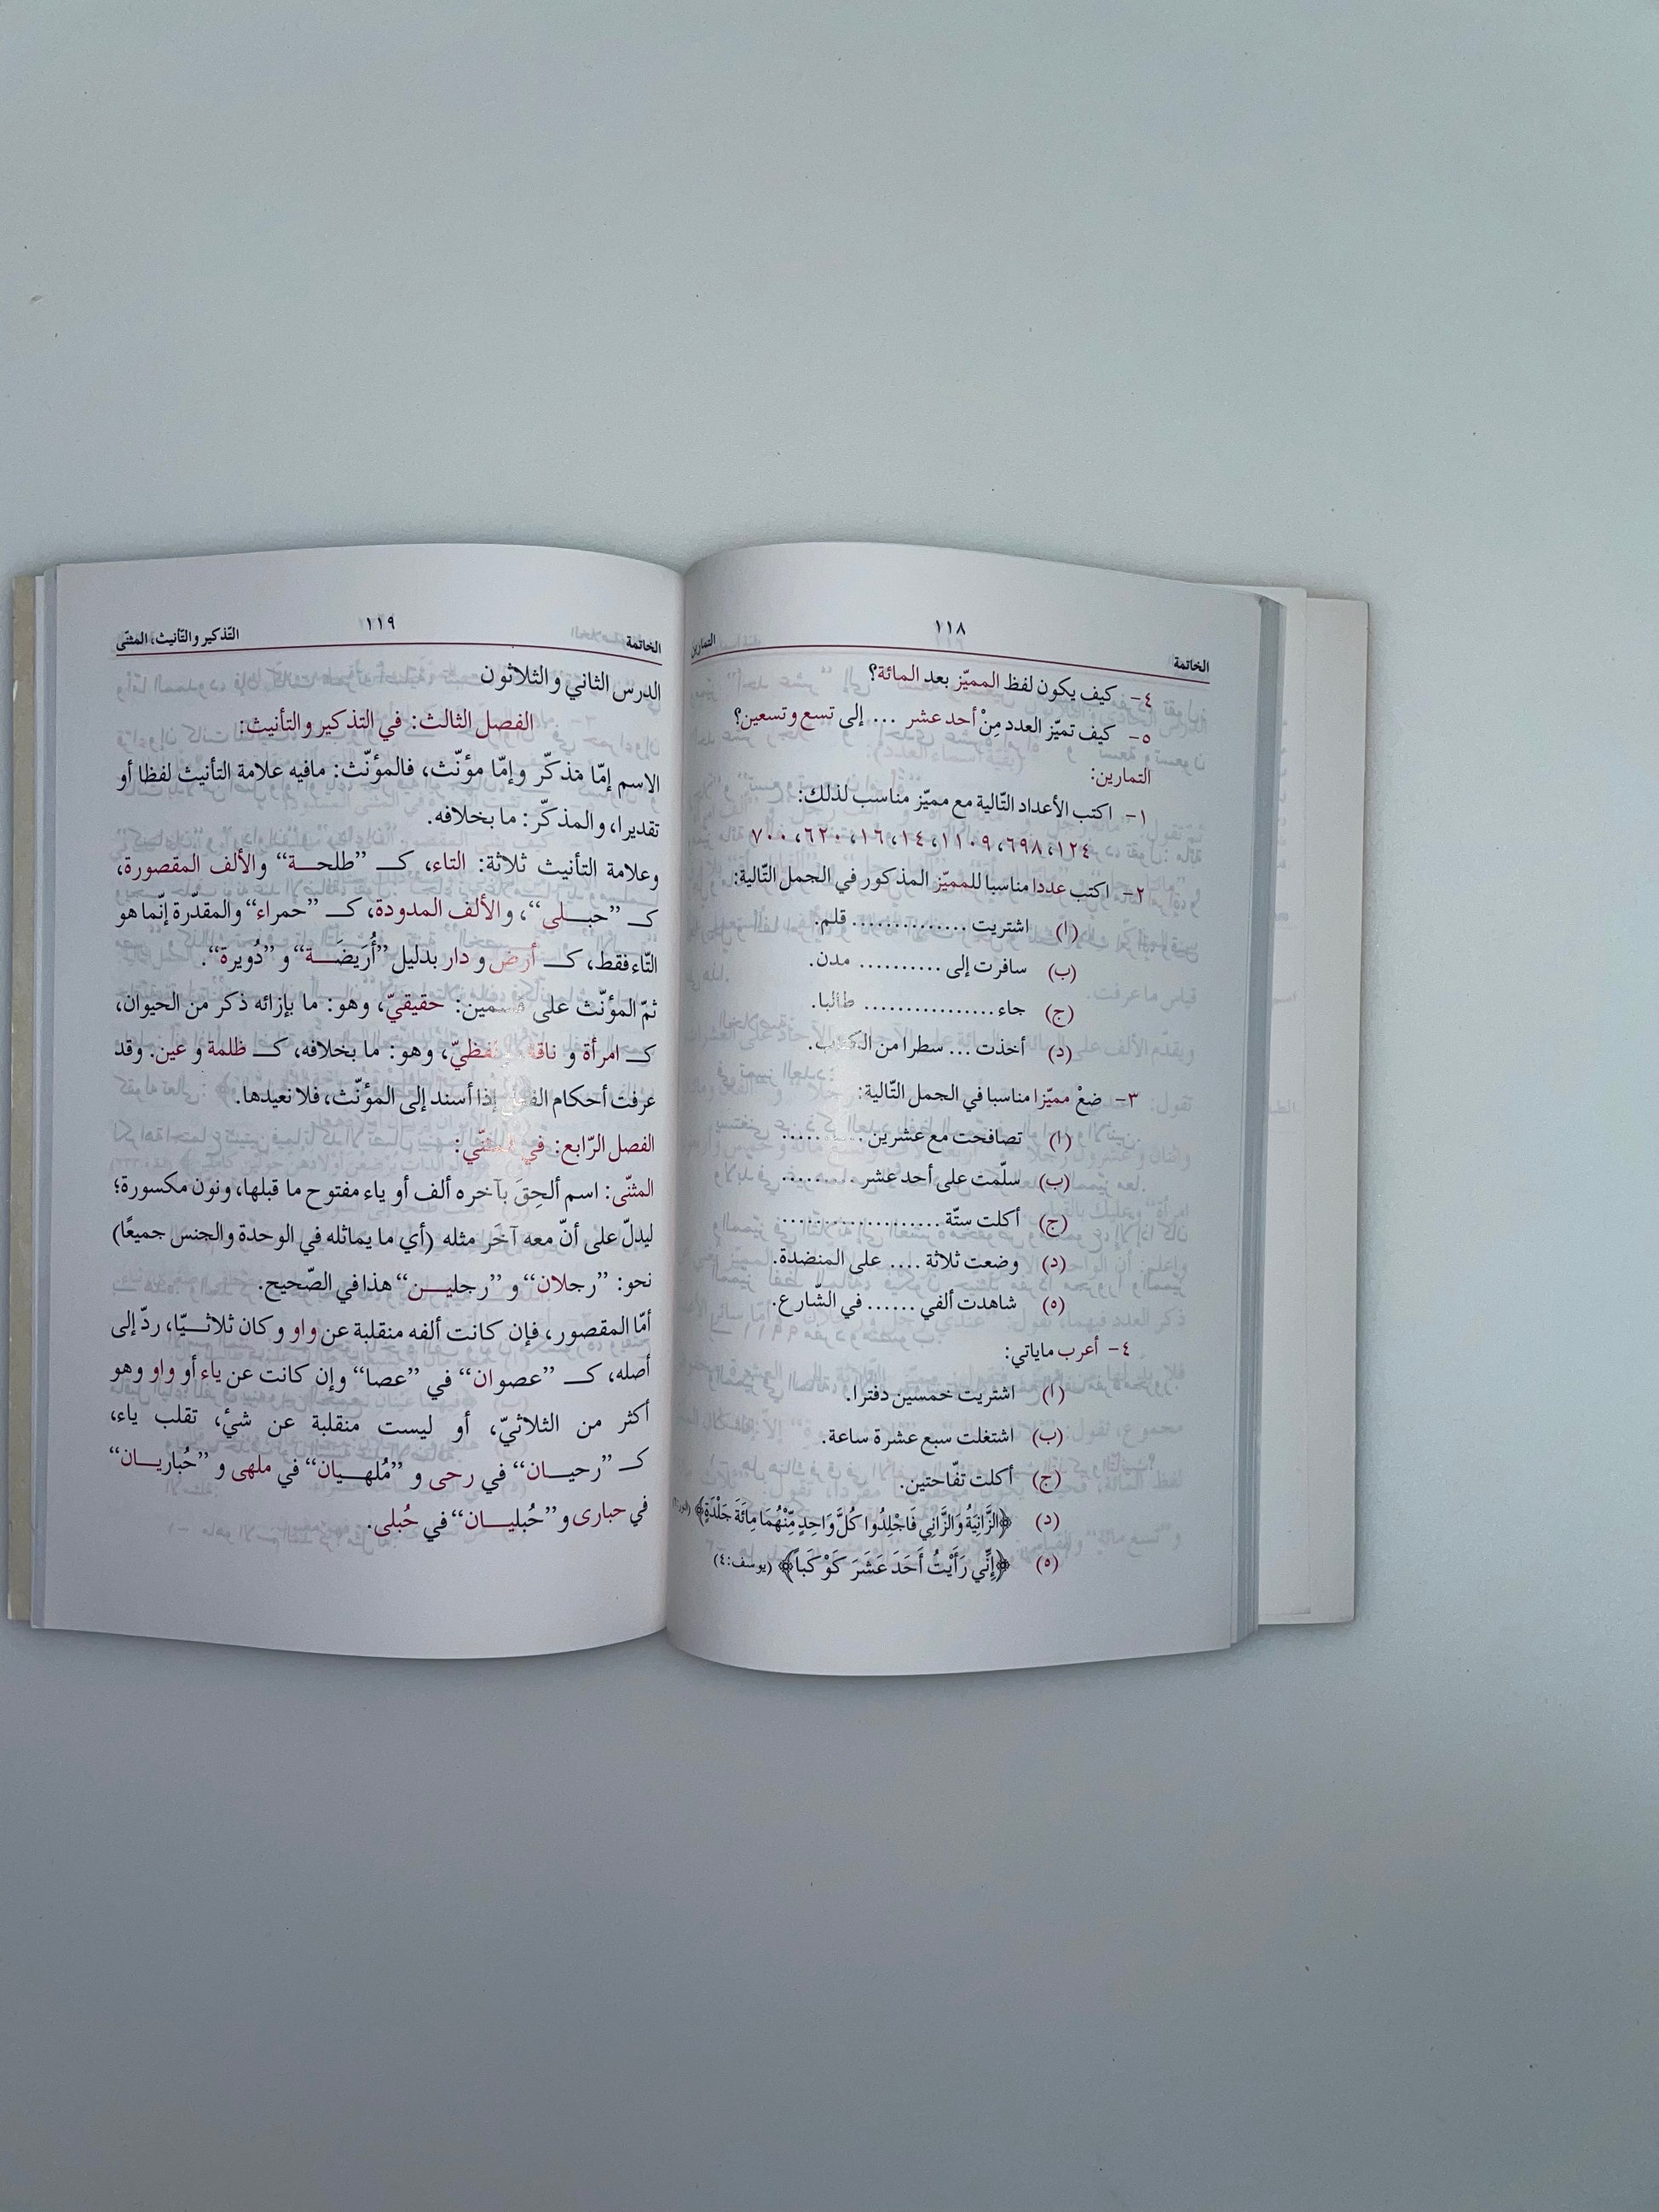 الخاتمة ١١٨ التمارين
٤- كيف يكون لفظ المميّز بعد المائة؟
٥- كيف تميّز العدد مِنْ أحد عشر ... إلى تسع وتسعين؟
التمارين:
١- اكتب الأعداد التّالية مع مميّز مناسب لذلك:
١٢٤، ٦٩٨، ١١٠٩، ١٤، ١٦، ٦٢٠، ٧٠٠
٢- اكتب عددا مناسبا للمميّز المذكور في الجمل التّالية:
(ا) اشتريت .............. قلم.
(ب) سافرت إلى .......... مدن.
(ج) جاء ................ طالبا.
(د) أخذت ... سطرا من الكتاب.
٣- ضعْ مميّزا مناسبا في الجمل التّالية:
(ا) تصافحت مع عشرين ..........
(ب) سلّمت على أحد عشر .........
(ج) أكلت ستّة ...................
(د) وضعت ثلاثة .... على المنضدة.
(ه) شاهدت ألفي ...... في الشّارع.
٤- أعرب ماياتي:
(ا) اشتريت خمسين دفترا.
(ب) اشتغلت سبع عشرة ساعة.
(ج) أكلت تفّاحتين.
(د) ﴿الزَّانِيَةُ وَالزَّانِي فَاجْلِدُوا كُلَّ وَاحِدٍ مِّنْهُمَا مِائَةَ جَلْدَةٍ﴾
(ه) ﴿إِنِّي رَأَيْتُ أَحَدَ عَشَرَ كَوْكَباً﴾ (يوسف:٤)
الخاتمة ١١٩ التّذكير والتّأنيث، المثنّى
الدرس الثاني والثلاثون
الفصل الثالث: في التذكير والتأنيث:
الاسم إمّا مذكّر وإمّا مؤنّث، فالمؤنّث: مافيه علامة التأنيث لفظا أو
تقديرا، والمذكّر: ما بخلافه.
وعلامة التأنيث ثلاثة: التاء، كـ ”طلحـة“ والألف المقصورة،
كـ ”حبـلى“، والألف المدودة، كـ ”حمراء“ والمقدّرة إنّما هو
التّاء فقط، كـ أرض و دار بدليل ”أُرَيضَـة“ و ”دُويرة“.
ثمّ المؤنّث على قسمين: حقيقيّ، وهو: ما بإزائه ذكر من الحيوان،
كـ امرأة و ناقة، ولفظيّ، وهو: ما بخلافه، كـ ظلمة و عين. وقد
عرفت أحكام الفعل إذا أسند إلى المؤنّث، فلا نعيدها.
الفصل الرّابع: في المثنّي:
المثنّى: اسم ألحِقَ بآخره ألف أو ياء مفتوح ما قبلها، ونون مكسورة؛
ليدلّ على أنّ معه آخَر مثله (أي ما يماثله في الوحدة والجنس جميعًا)
نحو: ”رجلان“ و ”رجليـن“ هذا في الصّحيح.
أمّا المقصور، فإن كانت ألفه منقلبة عن واو وكان ثلاثـيّا، ردّ إلى
أصله، كـ ”عصوان“ في ”عصا“ وإن كانت عن ياء أو واو وهو
أكثر من الثلاثيّ، أو ليست منقلبة عن شئ، تقلب ياء،
كـ ”رحيـان“ في رحى و ”مُلهـيان“ في ملهى و ”حُباريـان“
في حبارى و ”حُبليـان“ في حُبلى.